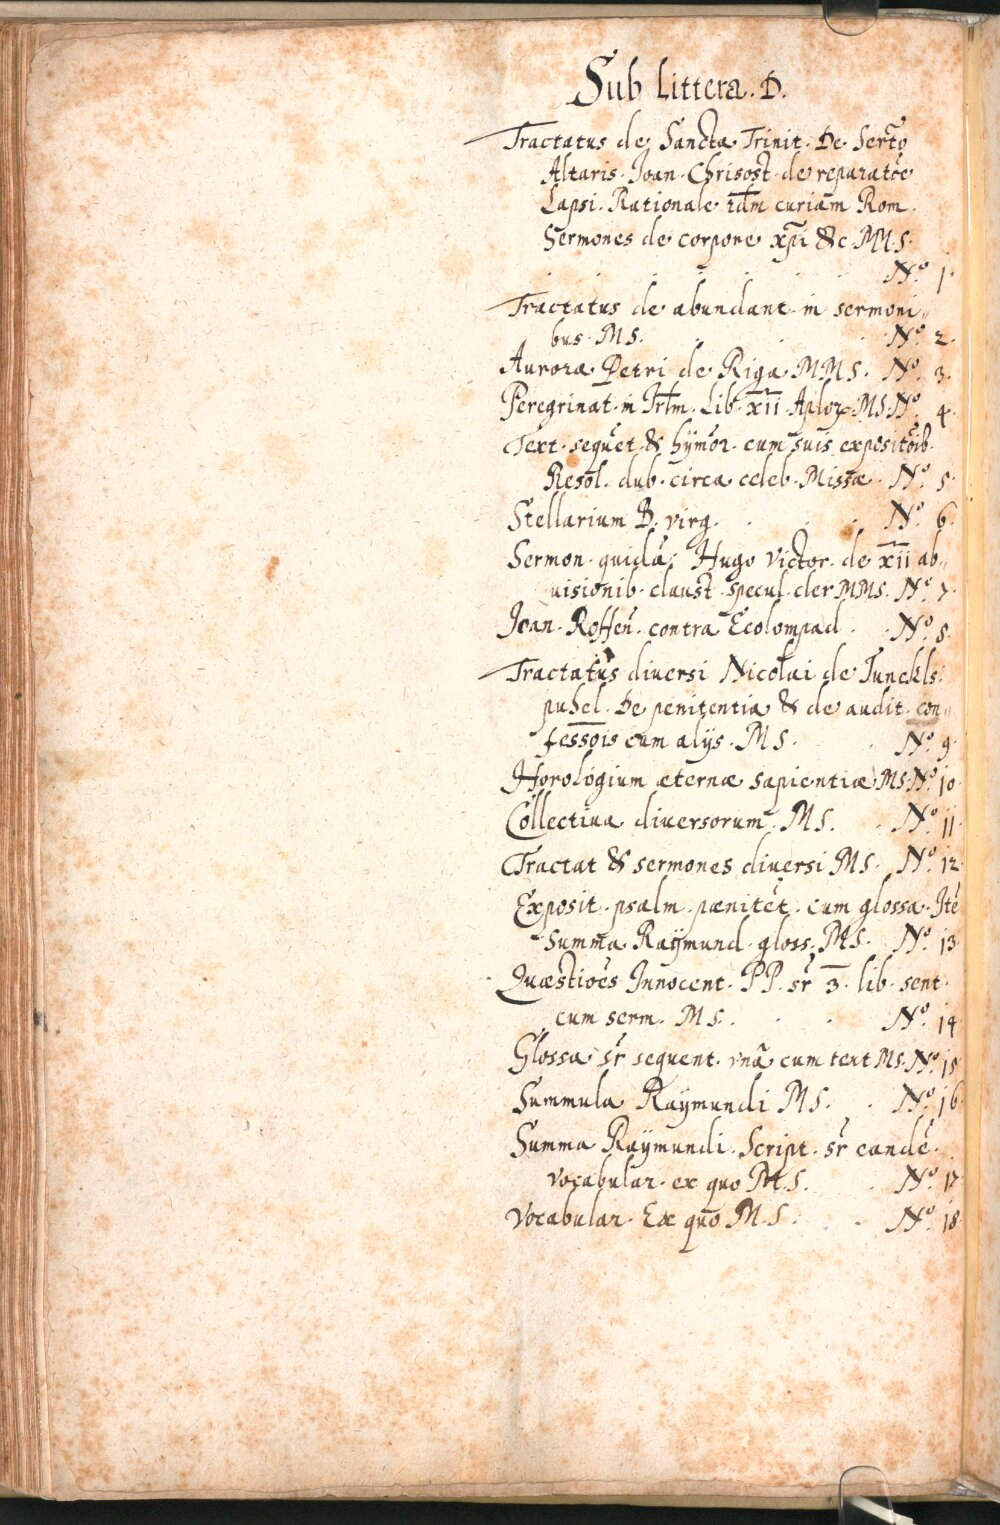 Sub Littera. D.
Tractatus de Sancta Trinit. De Sercto
Altaris. Joan. Chrisost. de reparatõe
Lapsi. Rationale scdm curiam Rom.
Sermones de corpore xp̃i &c. MM.S.
Nº 1.
Tractatus de abundant. in sermoni„
bus. MS. Nº 2.
Auroræ Petri de Riga. MMS. Nº 3.
Peregrinat. in Jrl̃m. Lib. xii Aploꝝ. MS. Nº 4.
Text. sequet. & hÿmor. cum suis expositõib.
Resol. dub. circa celeb. Missæ. Nº 5.
Stellarium B. virg. Nº 6.
Sermon. quidã: Hugo victor. de xii ab„
uisionib. claust. specul. cler MMS. Nº 7.
Joan. Roffeñ. contra Ecolompad. Nº 8.
Tractatus diuersi Nicolai de Dunckls:
puhel. De penitentia & de audit. con„
fessõis cum alijs. MS. Nº 9.
Horologium æternæ sapientiæ MS. Nº 10
Collectiua diuersorum. MS. Nº 11
Tractat & sermones diuersi MS. Nº 12
Exposit. psalm. pænitẽt. cum glossa. Jtẽ
Summa Raÿmund. gloss. MS. Nº 13
Quæstiões Innocent. PP. sr̃ 3. lib. sent.
cum serm. MS. Nº 14
Glossa sr̃ sequent. vnã cum text MS. Nº 15
Summula Raÿmundi MS. Nº 16
Summa Raÿmundi. Script. sr̃ eandẽ.
vocabular. ex quo MS. Nº 17
Vocabular. Ex quo MS. Nº 18